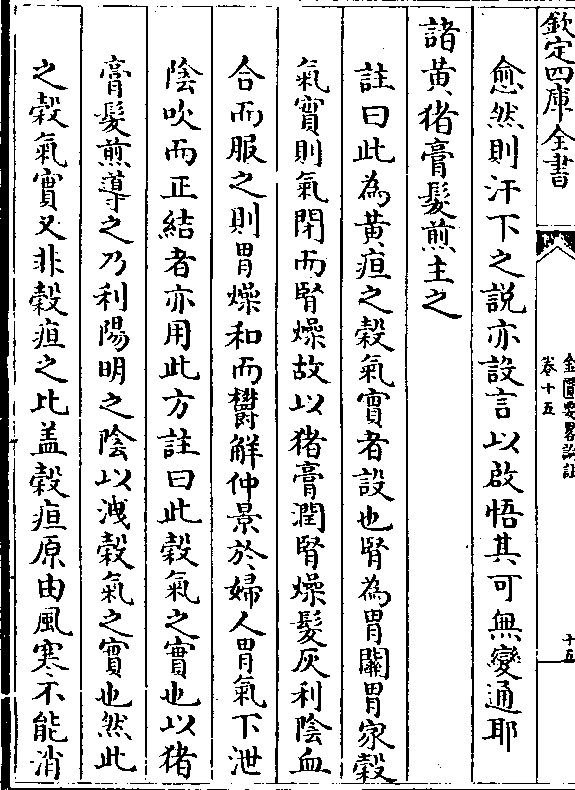 欽定四庫全書
金匱要畧論註
卷十五
十五
愈然則汗下之説亦設言以啟悟其可無變通耶
諸黄猪膏髮煎主之
註曰此為黄疸之穀氣實者設也腎為胃關胃家穀
氣實則氣閉而腎燥故以猪膏潤腎燥髮灰利陰血
合而服之則胃燥和而欝解仲景於婦人胃氣下泄
陰吹而正結者亦用此方註曰此穀氣之實也以猪
膏髮煎導之乃利陽明之陰以洩穀氣之實也然此
之穀氣實又非穀疸之比盖穀疸原由風寒不能消